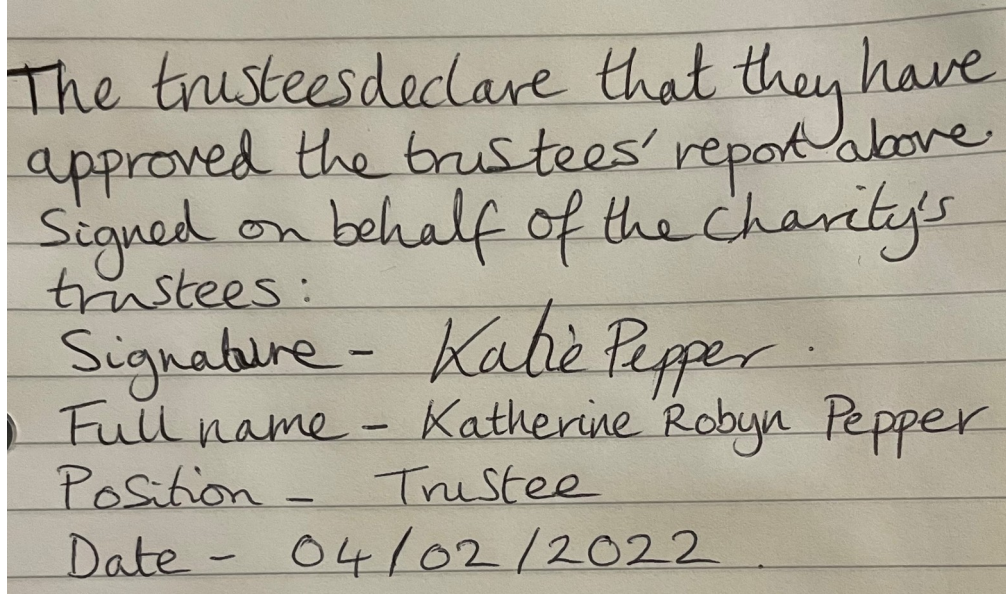 The trusteesdeclare that they have
approved the trustees' report above.
Signed on behalf of the charity's
trustees:
Signature - Katie Pepper.
Full name - Katherine Robyn Pepper
Position - Trustee
Date - 04/02/2022.